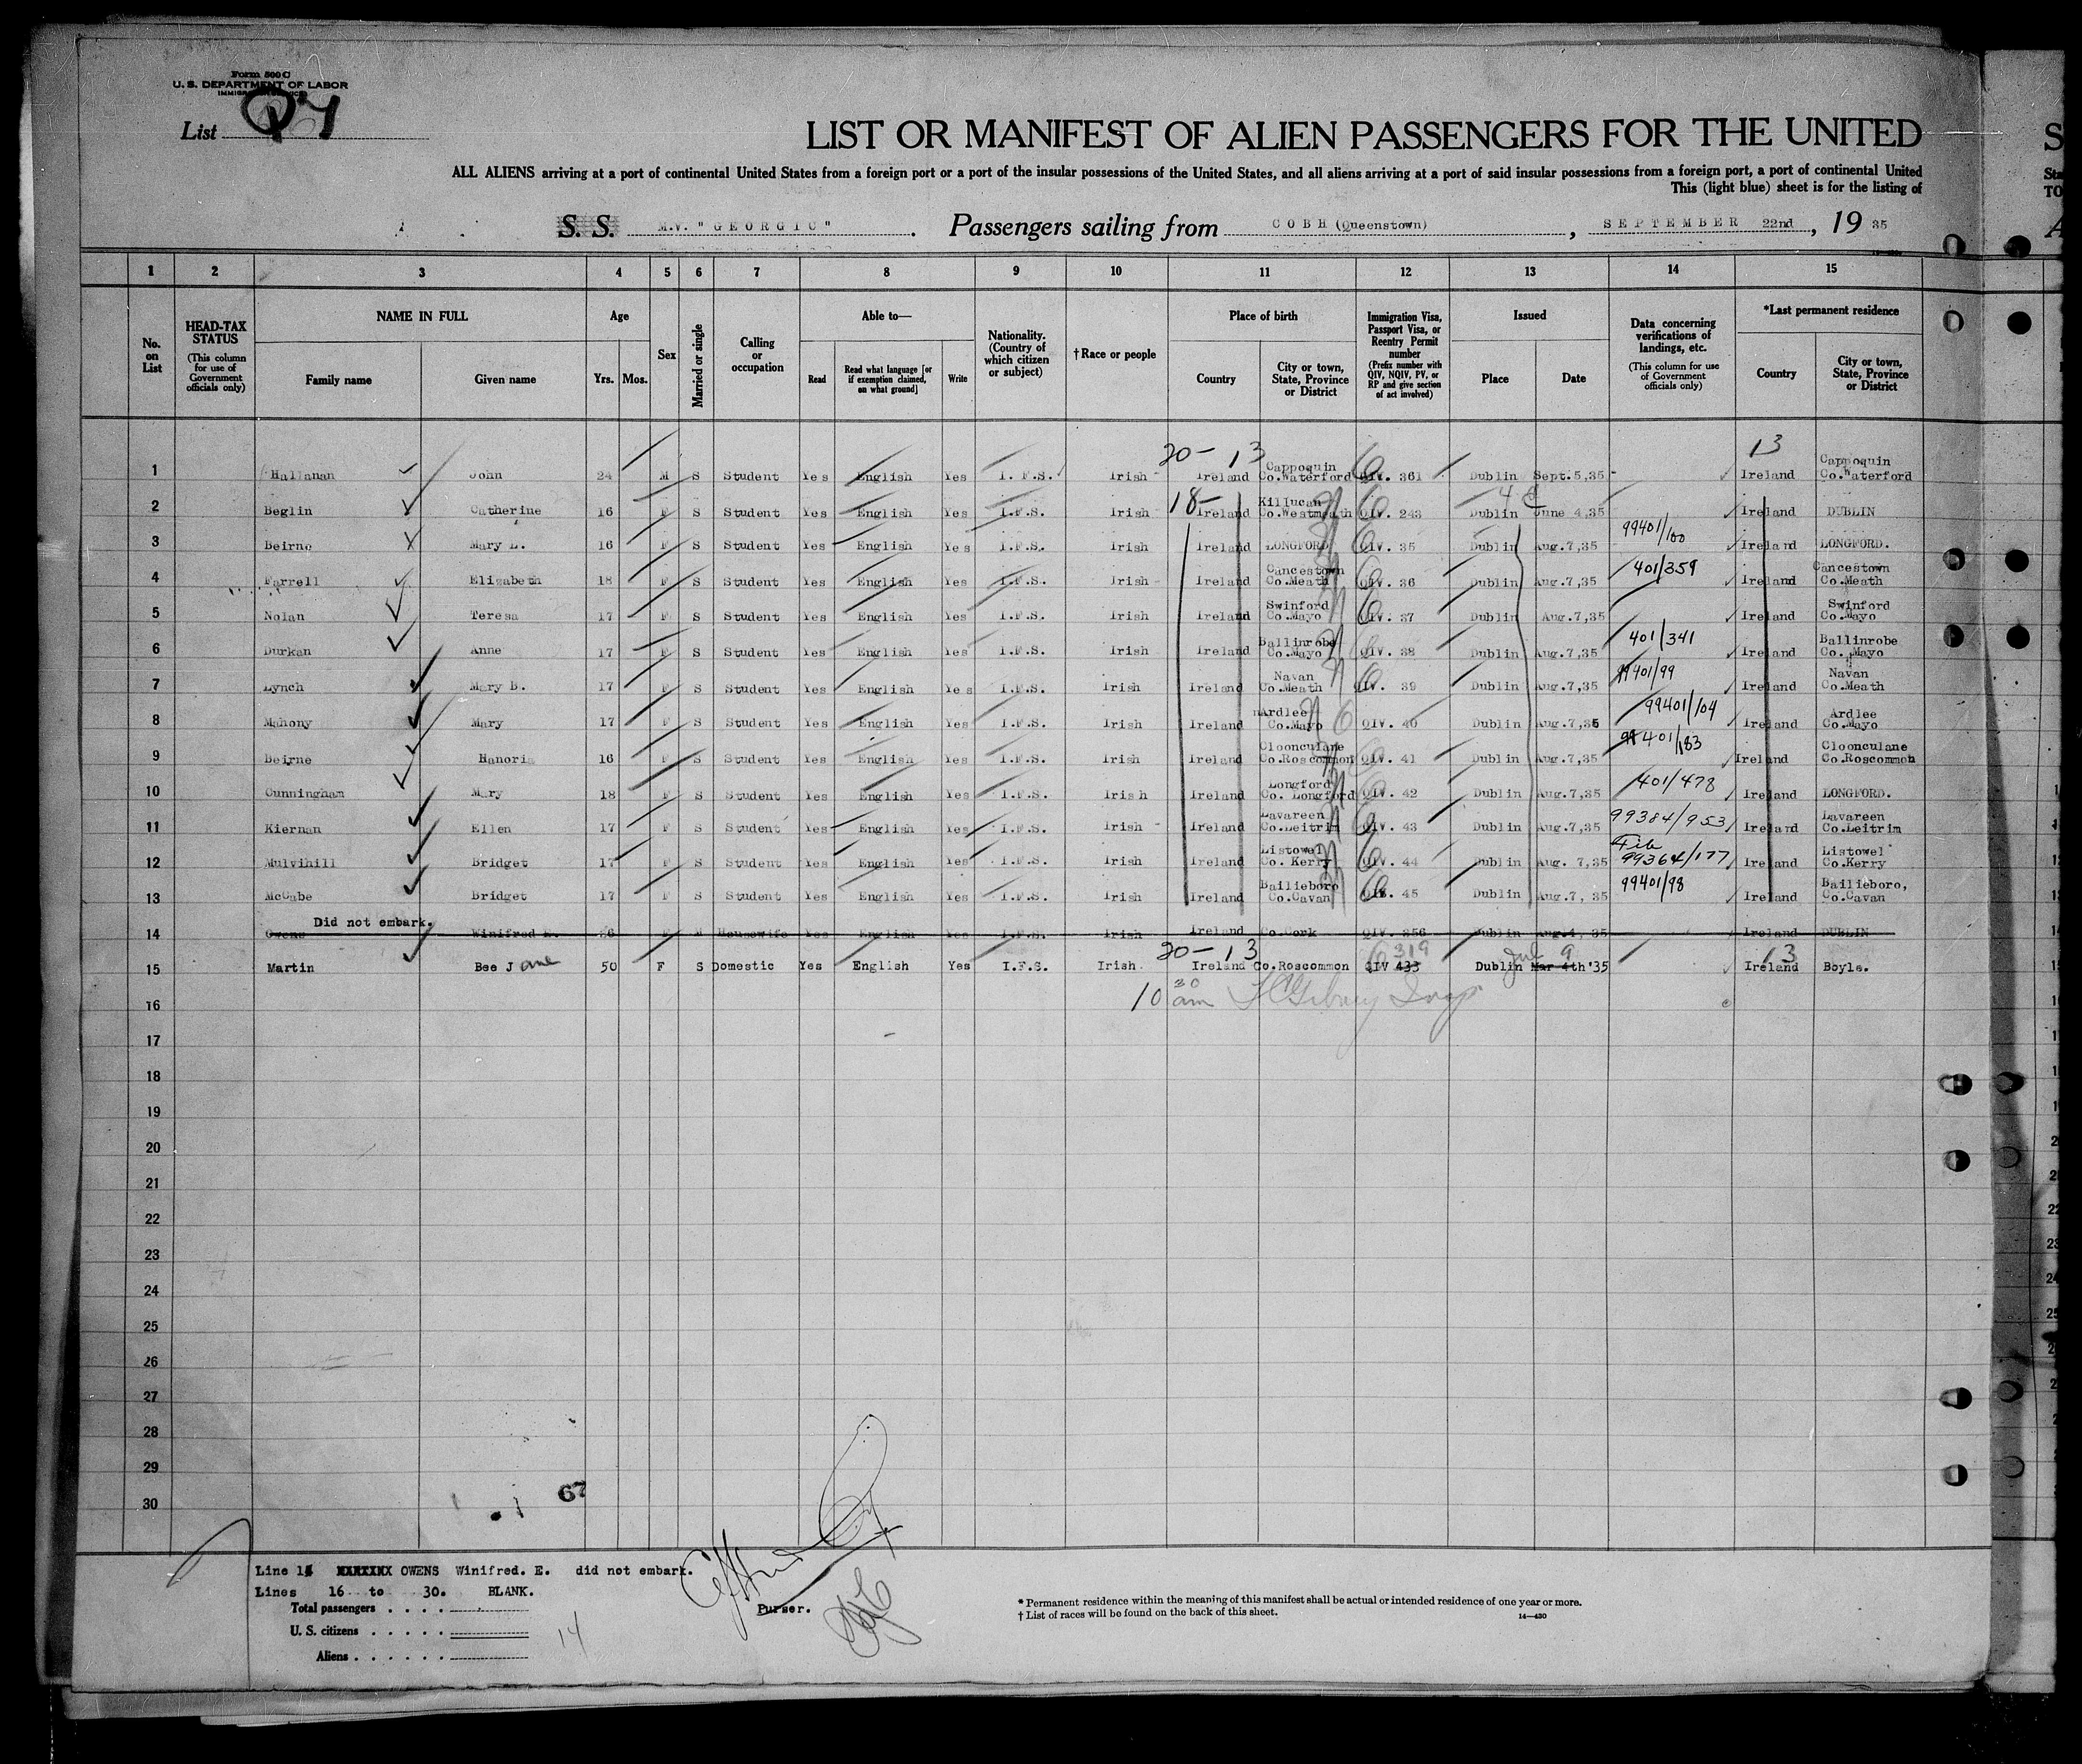 Form 500 C
U. S. DEPARTMENT OF LABOR
List
LIST OR MANIFEST OF ALIEN PASSENGERS FOR THE UNITED
ALL ALIENS arriving at a port of continental United States from a foreign port or a port of the insular possessions of the United States, and all aliens arriving at a port of said insular possessions from a foreign port, a port of continental United
This (light blue) sheet is for the listing of
S. S. M.V. "GEORGIC" . Passengers sailing from COBH (Queenstown) , SEPTEMBER 22nd , 19 35
1 2 3 4 5 6 7 8 9 10 11 12 13 14 15
No. on List
HEAD-TAX STATUS (This column for use of Government officials only)
NAME IN FULL Family name Given name
Age Yrs. Mos.
Sex
Married or single
Calling or occupation
Able to— Read Read what language [or if exemption claimed, on what ground] Write
Nationality. (Country of which citizen or subject)
† Race or people
Place of birth Country City or town, State, Province or District
Immigration Visa, Passport Visa, or Reentry Permit number (Prefix number with QIV, NQIV, PV, or RP and give section of act involved)
Issued Place Date
Data concerning verifications of landings, etc. (This column for use of Government officials only)
*Last permanent residence Country City or town, State, Province or District
20 - 13 13
1 Hallanan John 24 M S Student Yes English Yes I.F.S. Irish Ireland Cappoquin Co.Waterford QIV. 361 Dublin Sept.5,35 Ireland Cappoquin Co.Waterford
2 Beglin Catherine 16 F S Student Yes English Yes I.F.S. Irish 18- Ireland Killucan Co.Westmeath QIV. 243 Dublin June 4,35 Ireland DUBLIN
3 Beirne Mary E. 16 F S Student Yes English Yes I.F.S. Irish Ireland LONGFORD QIV. 35 Dublin Aug.7,35 99401/100 Ireland LONGFORD.
4 Farrell Elizabeth 18 F S Student Yes English Yes I.F.S. Irish Ireland Cancestown Co.Meath QIV. 36 Dublin Aug.7,35 401/359 Ireland Cancestown Co.Meath
5 Nolan Teresa 17 F S Student Yes English Yes I.F.S. Irish Ireland Swinford Co.Mayo QIV. 37 Dublin Aug.7,35 Ireland Swinford Co.Mayo
6 Durkan Anne 17 F S Student Yes English Yes I.F.S. Irish Ireland Ballinrobe Co.Mayo QIV. 38 Dublin Aug.7,35 401/341 Ireland Ballinrobe Co. Mayo
7 Lynch Mary B. 17 F S Student Yes English Yes I.F.S. Irish Ireland Navan Co.Meath QIV. 39 Dublin Aug.7,35 99401/99 Ireland Navan Co.Meath
8 Mahony Mary 17 F S Student Yes English Yes I.F.S. Irish Ireland Ardlee Co.Mayo QIV. 40 Dublin Aug.7,35 99401/104 Ireland Ardlee Co.Mayo
9 Beirne Hanoria 16 F S Student Yes English Yes I.F.S. Irish Ireland Cloonculane Co.Roscommon QIV. 41 Dublin Aug.7,35 99401/183 Ireland Cloonculane Co.Roscommon
10 Cunningham Mary 18 F S Student Yes English Yes I.F.S. Irish Ireland Longford Co. Longford QIV. 42 Dublin Aug.7,35 401/478 Ireland LONGFORD.
11 Kiernan Ellen 17 F S Student Yes English Yes I.F.S. Irish Ireland Lavareen Co.Leitrim QIV. 43 Dublin Aug.7,35 99384/953 Ireland Lavareen Co.Leitrim
12 Mulvihill Bridget 17 F S Student Yes English Yes I.F.S. Irish Ireland Listowel Co. Kerry QIV. 44 Dublin Aug. 7,35 99364/177 Ireland Listowel Co.Kerry
13 McCabe Bridget 17 F S Student Yes English Yes I.F.S. Irish Ireland Bailieboro Co.Cavan QIV. 45 Dublin Aug.7, 35 99401/98 Ireland Bailieboro, Co.Cavan
Did not embark.
14 Owens Winifred E. 36 F M Housewife Yes English Yes I.F.S. Irish Ireland Co.Cork QIV. 256 Dublin Aug.1, 35 Ireland DUBLIN
20 - 13 319 Jul 9 13
15 Martin Bee Jane 50 F S Domestic Yes English Yes I.F.S. Irish. Ireland Co.Roscommon QIV 433 Dublin Mar 4th '35 Ireland Boyle.
16 10 30 am
17
18
19
20
21
22
23
24
25
26
27
28
29
30
67
Line 14 OWENS Winifred. E. did not embark.
Lines 16 to 30. BLANK.
Total passengers . . . .
U. S. citizens . . . . .
Aliens . . . . . .
14
Purser.
* Permanent residence within the meaning of this manifest shall be actual or intended residence of one year or more.
† List of races will be found on the back of this sheet.
14—430